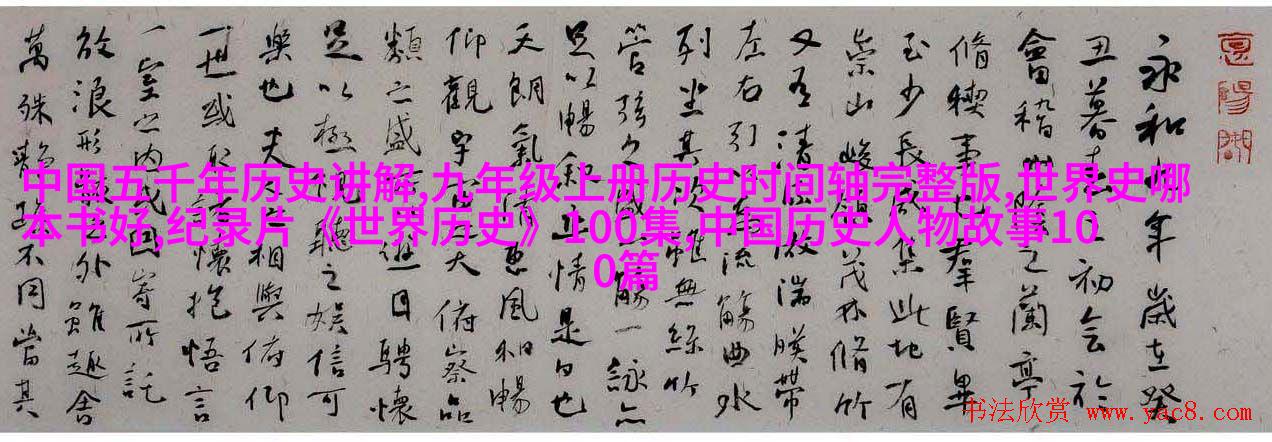 中国五千年历史讲解,九年级上册历史时间轴完整版,世界史哪
本书好,纪录片《世界历史》100集,中国历史人物故事10
0篇
永和九年歲在癸
丑暮春之初會於
會稽山陰之蘭亭
脩稧事也羣賢畢
至少長咸集此地有
崇山峻領茂林脩竹
又有清流激湍暎帶
左右引以為流觴曲水
列坐其次雖無絲竹
管弦之盛一觴一詠亦
足以暢叙幽情是日也
天朗氣清惠風和暢
仰觀宇宙之大俯察品
類之盛所以遊目騁懷
足以極視聽之娛信可
樂也夫人之相與俯仰
一世或取諸懷抱悟言
一室之内或因寄所託
放浪形骸之外雖趣舍
萬殊靜躁不同當其
书法欣赏 www.yac8.com